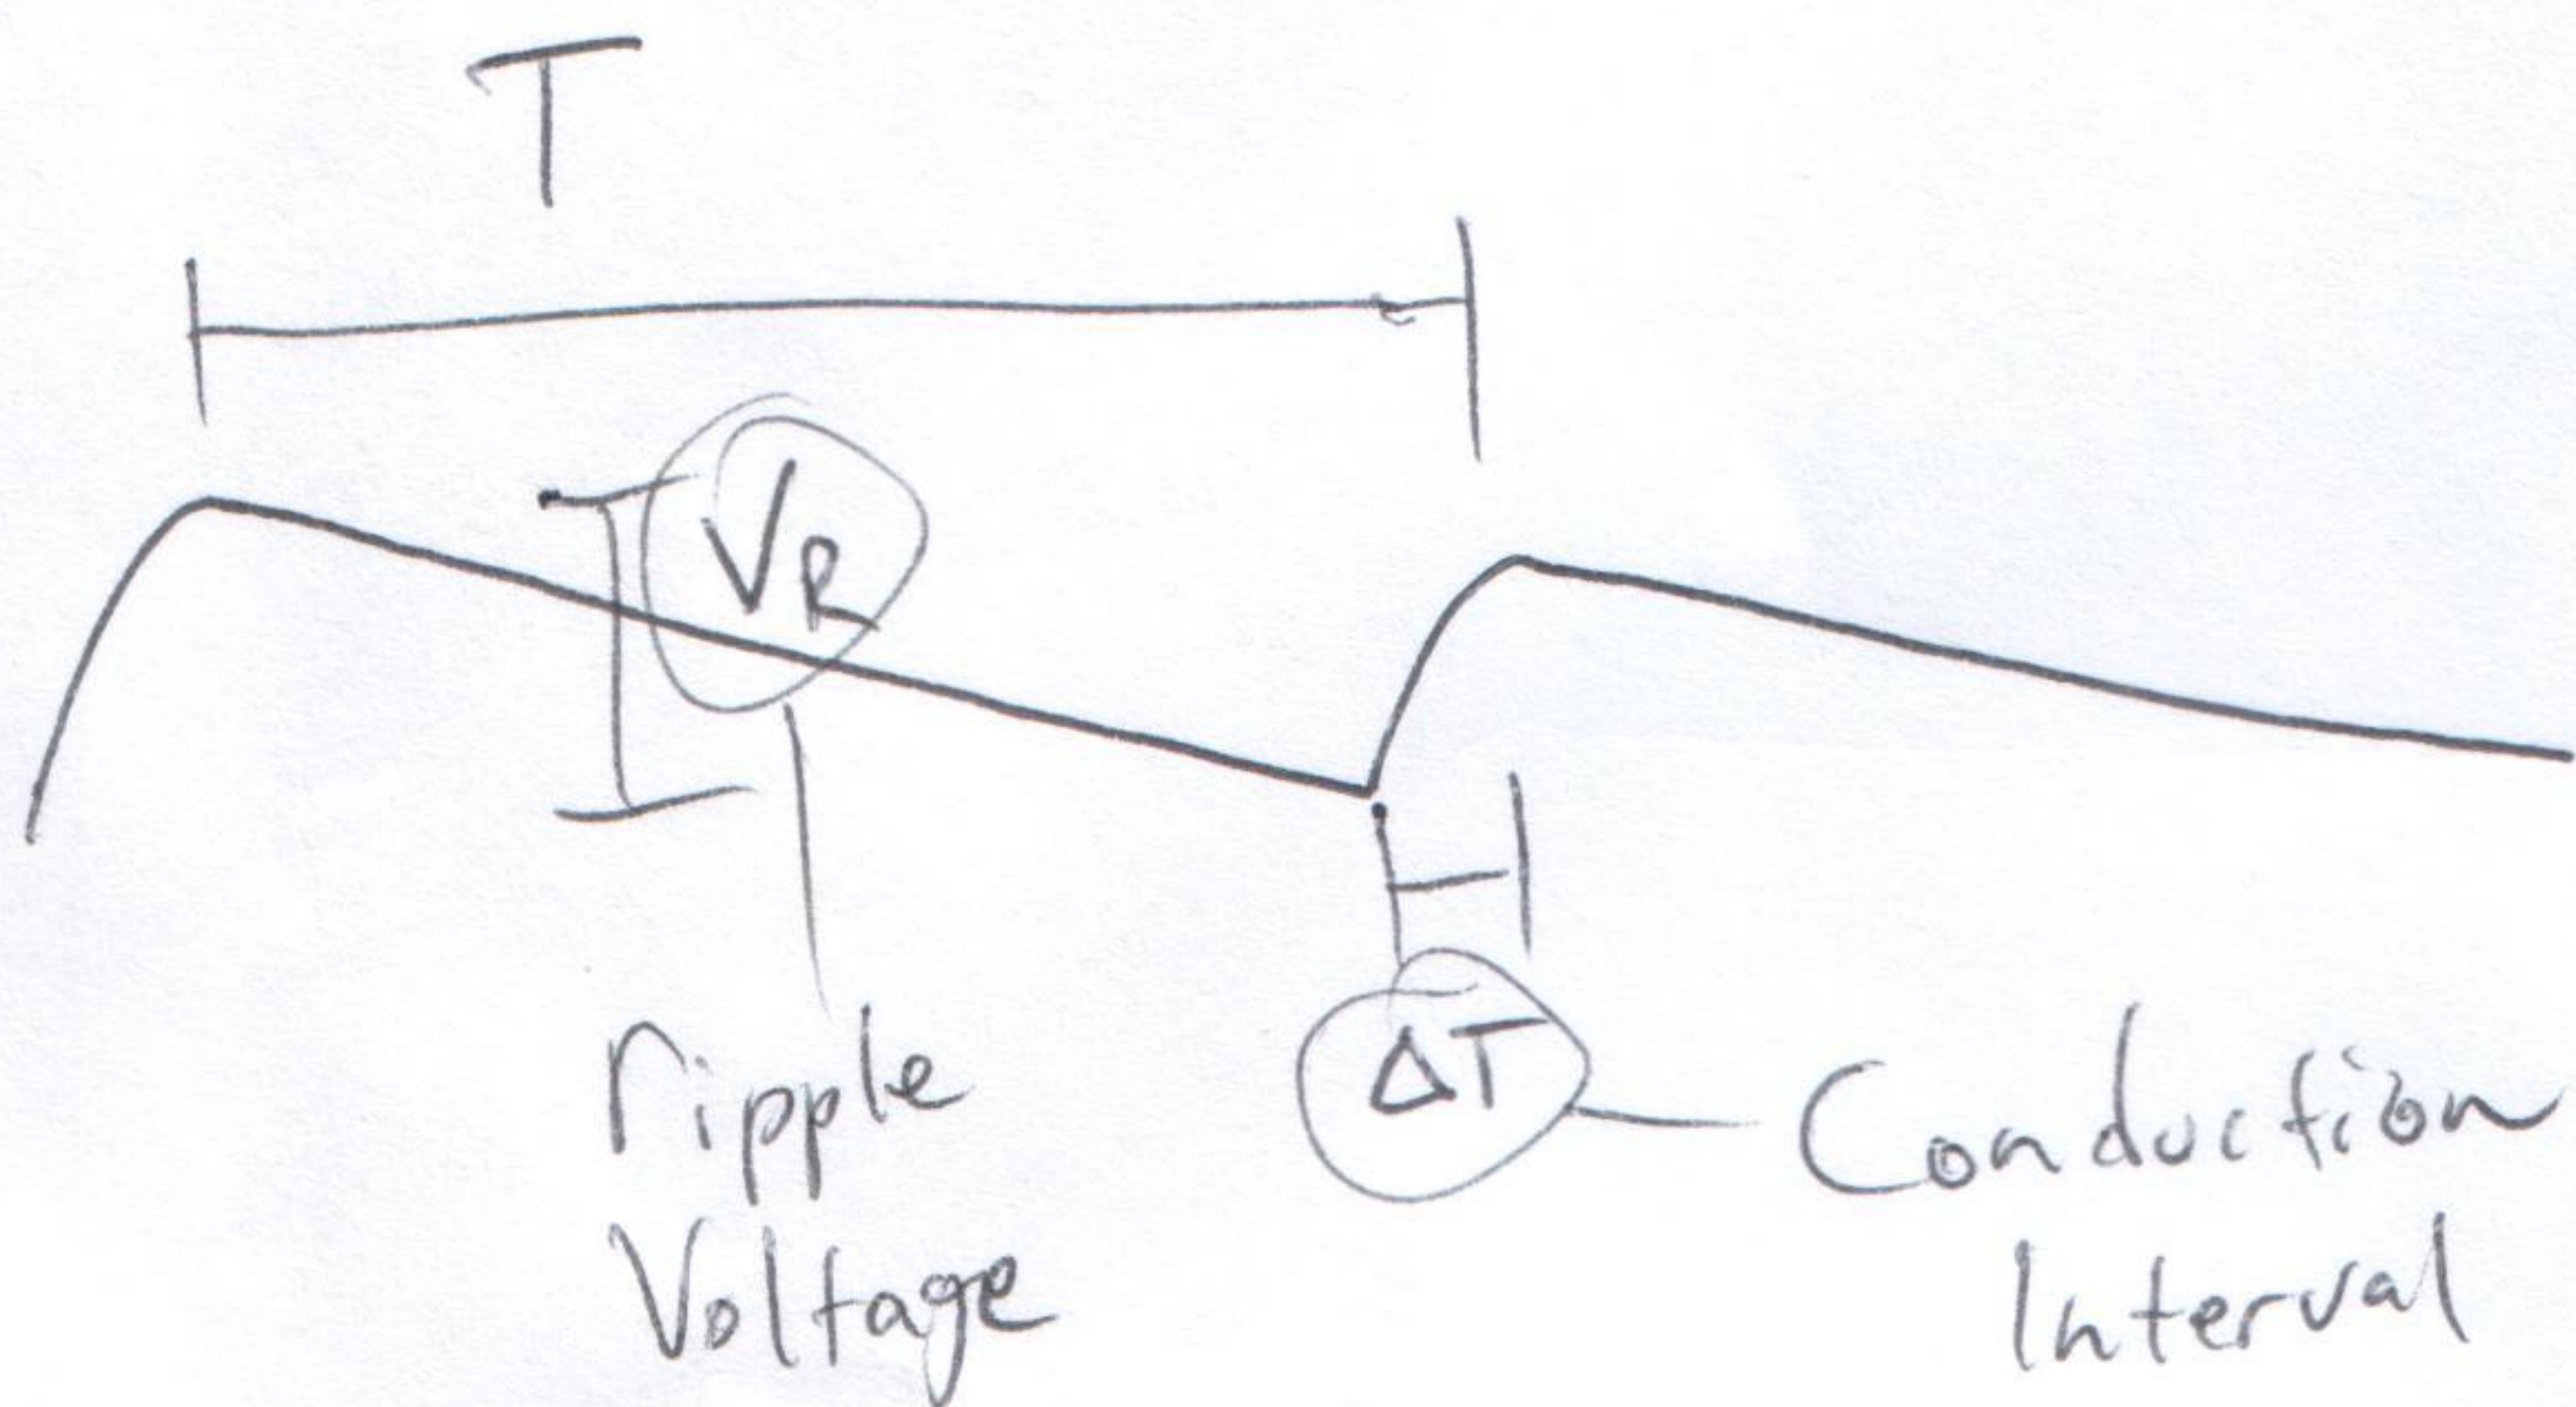 T
VR
ripple
Voltage
ΔT
Conduction
Interval